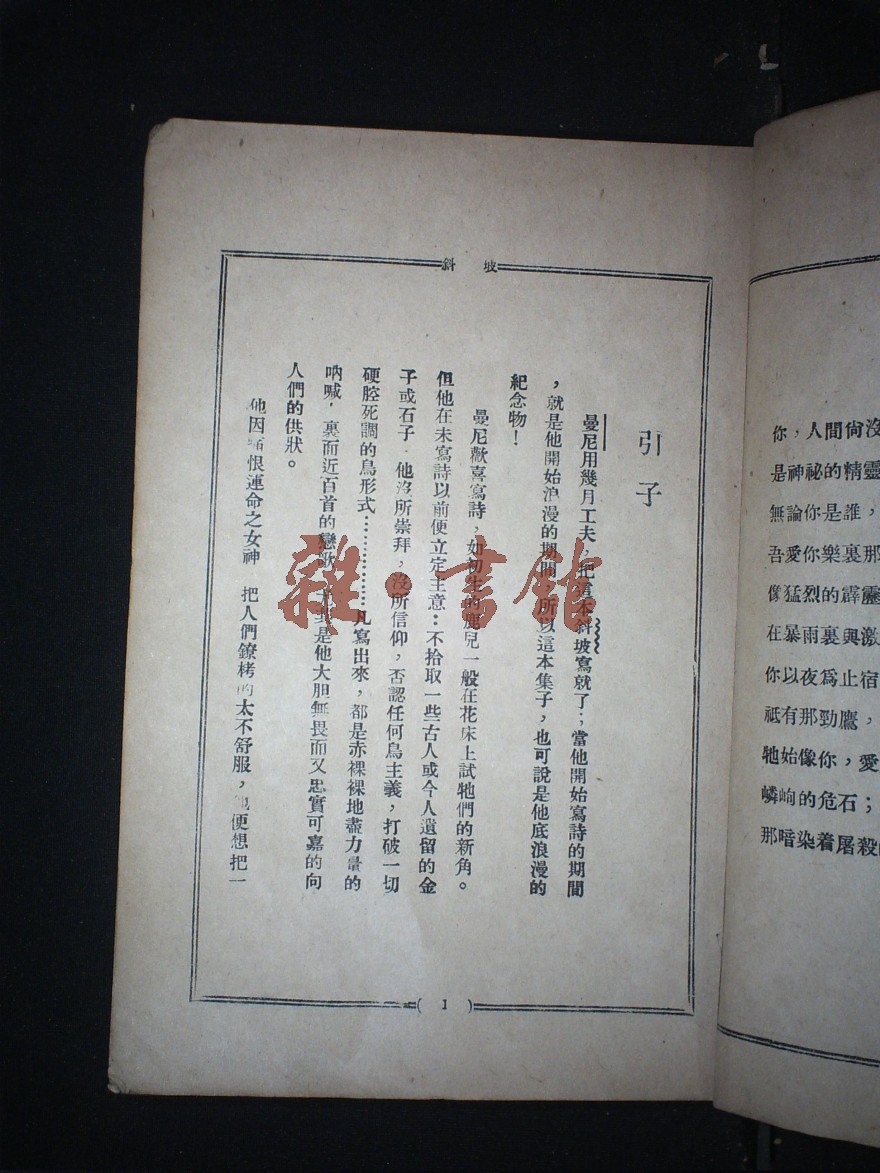 斜坡
引子
曼尼用幾月工夫 把這本斜坡寫就了；當他開始寫詩的期間
，就是他開始浪漫的期間 所以這本集子，也可說是他底浪漫的
紀念物！
曼尼歡喜寫詩，如初生的鹿兒一般在花床上試牠們的新角。
但他在未寫詩以前便立定主意：不拾取一些古人或今人遺留的金
子或石子 他沒所崇拜，沒所信仰，否認任何鳥主義，打破一切
硬腔死調的鳥形式………………凡寫出來，都是赤裸裸地盡力量的
吶喊，裏面近百首的戀歌 是他大胆無畏而又忠實可嘉的向
人們的供狀。
他因 恨運命之女神 把人們鐐栲的太不舒服， 便想把一
( 1 )
你，人間尙沒
是神祕的精靈
無論你是誰，
吾愛你樂裏那
像猛烈的霹靂
在暴雨裏興激
你以夜爲止宿
祗有那勁鷹，
牠始像你，愛
嶙峋的危石；
那暗染着屠殺
雜·書館